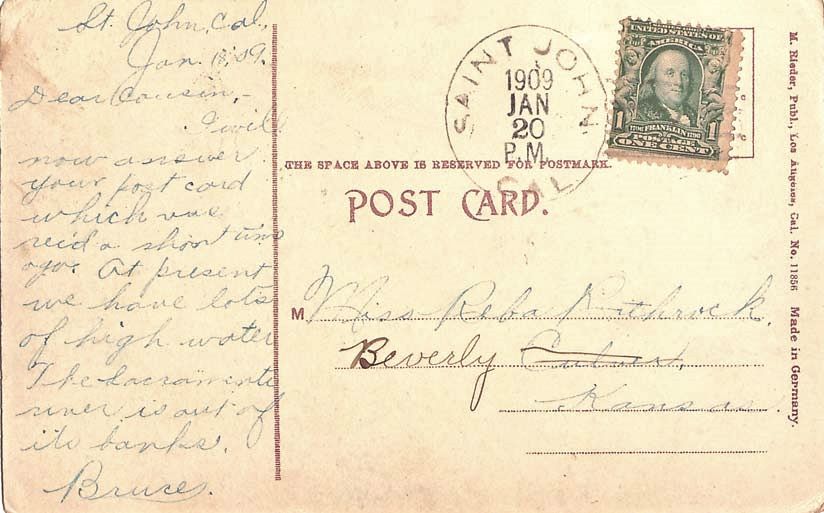 St. John, Cal.,
Jan. 18, 09.
Dear Cousin,-
I will
now answer
your post card
which was
rec'd a short time
ago. At present
we have lots
of high water
The Sacramento
river is out of
its banks.
Bruce.
SAINT JOHN
1909
JAN
20
P.M.
CAL.
UNITED STATES OF
AMERICA
1706 FRANKLIN 1790
1 1
POSTAGE
ONE CENT
THE SPACE ABOVE IS RESERVED FOR POSTMARK.
POST CARD.
M Miss Reba Rothrock.
Beverly Culver,
Kansas.
M. Rieder, Publ., Los Angeles, Cal. No. 11856 Made in Germany.